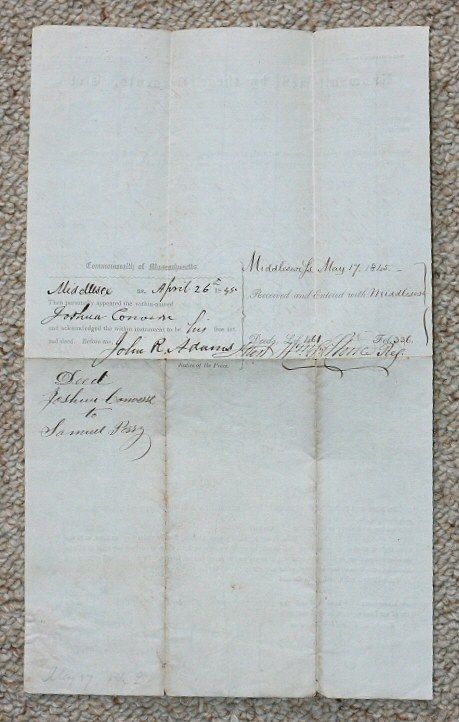 Commonwealth of Massachusetts.
Middlesex ss. April 26th 1845.
Then personally appeared the within-named
Joshua Converse
and acknowledged the within instrument to be his free act
and deed. Before me,
John R. Adams
Justice of the Peace.
Middlesex ss. May 17. 1845.
Received and Entered with Middlesex
Deeds, Lib. 461 Fol. 336.
Attest Wm. Stone Reg.
Deed
Joshua Converse
to
Samuel Perry